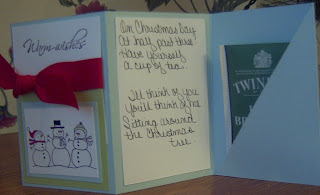 Warm-wishes
On Christmas Day
At half past three
Have yourself
a cup of tea.
I'll think of you
You'll think of me
Sitting around
the Christmas
tree
TWIN